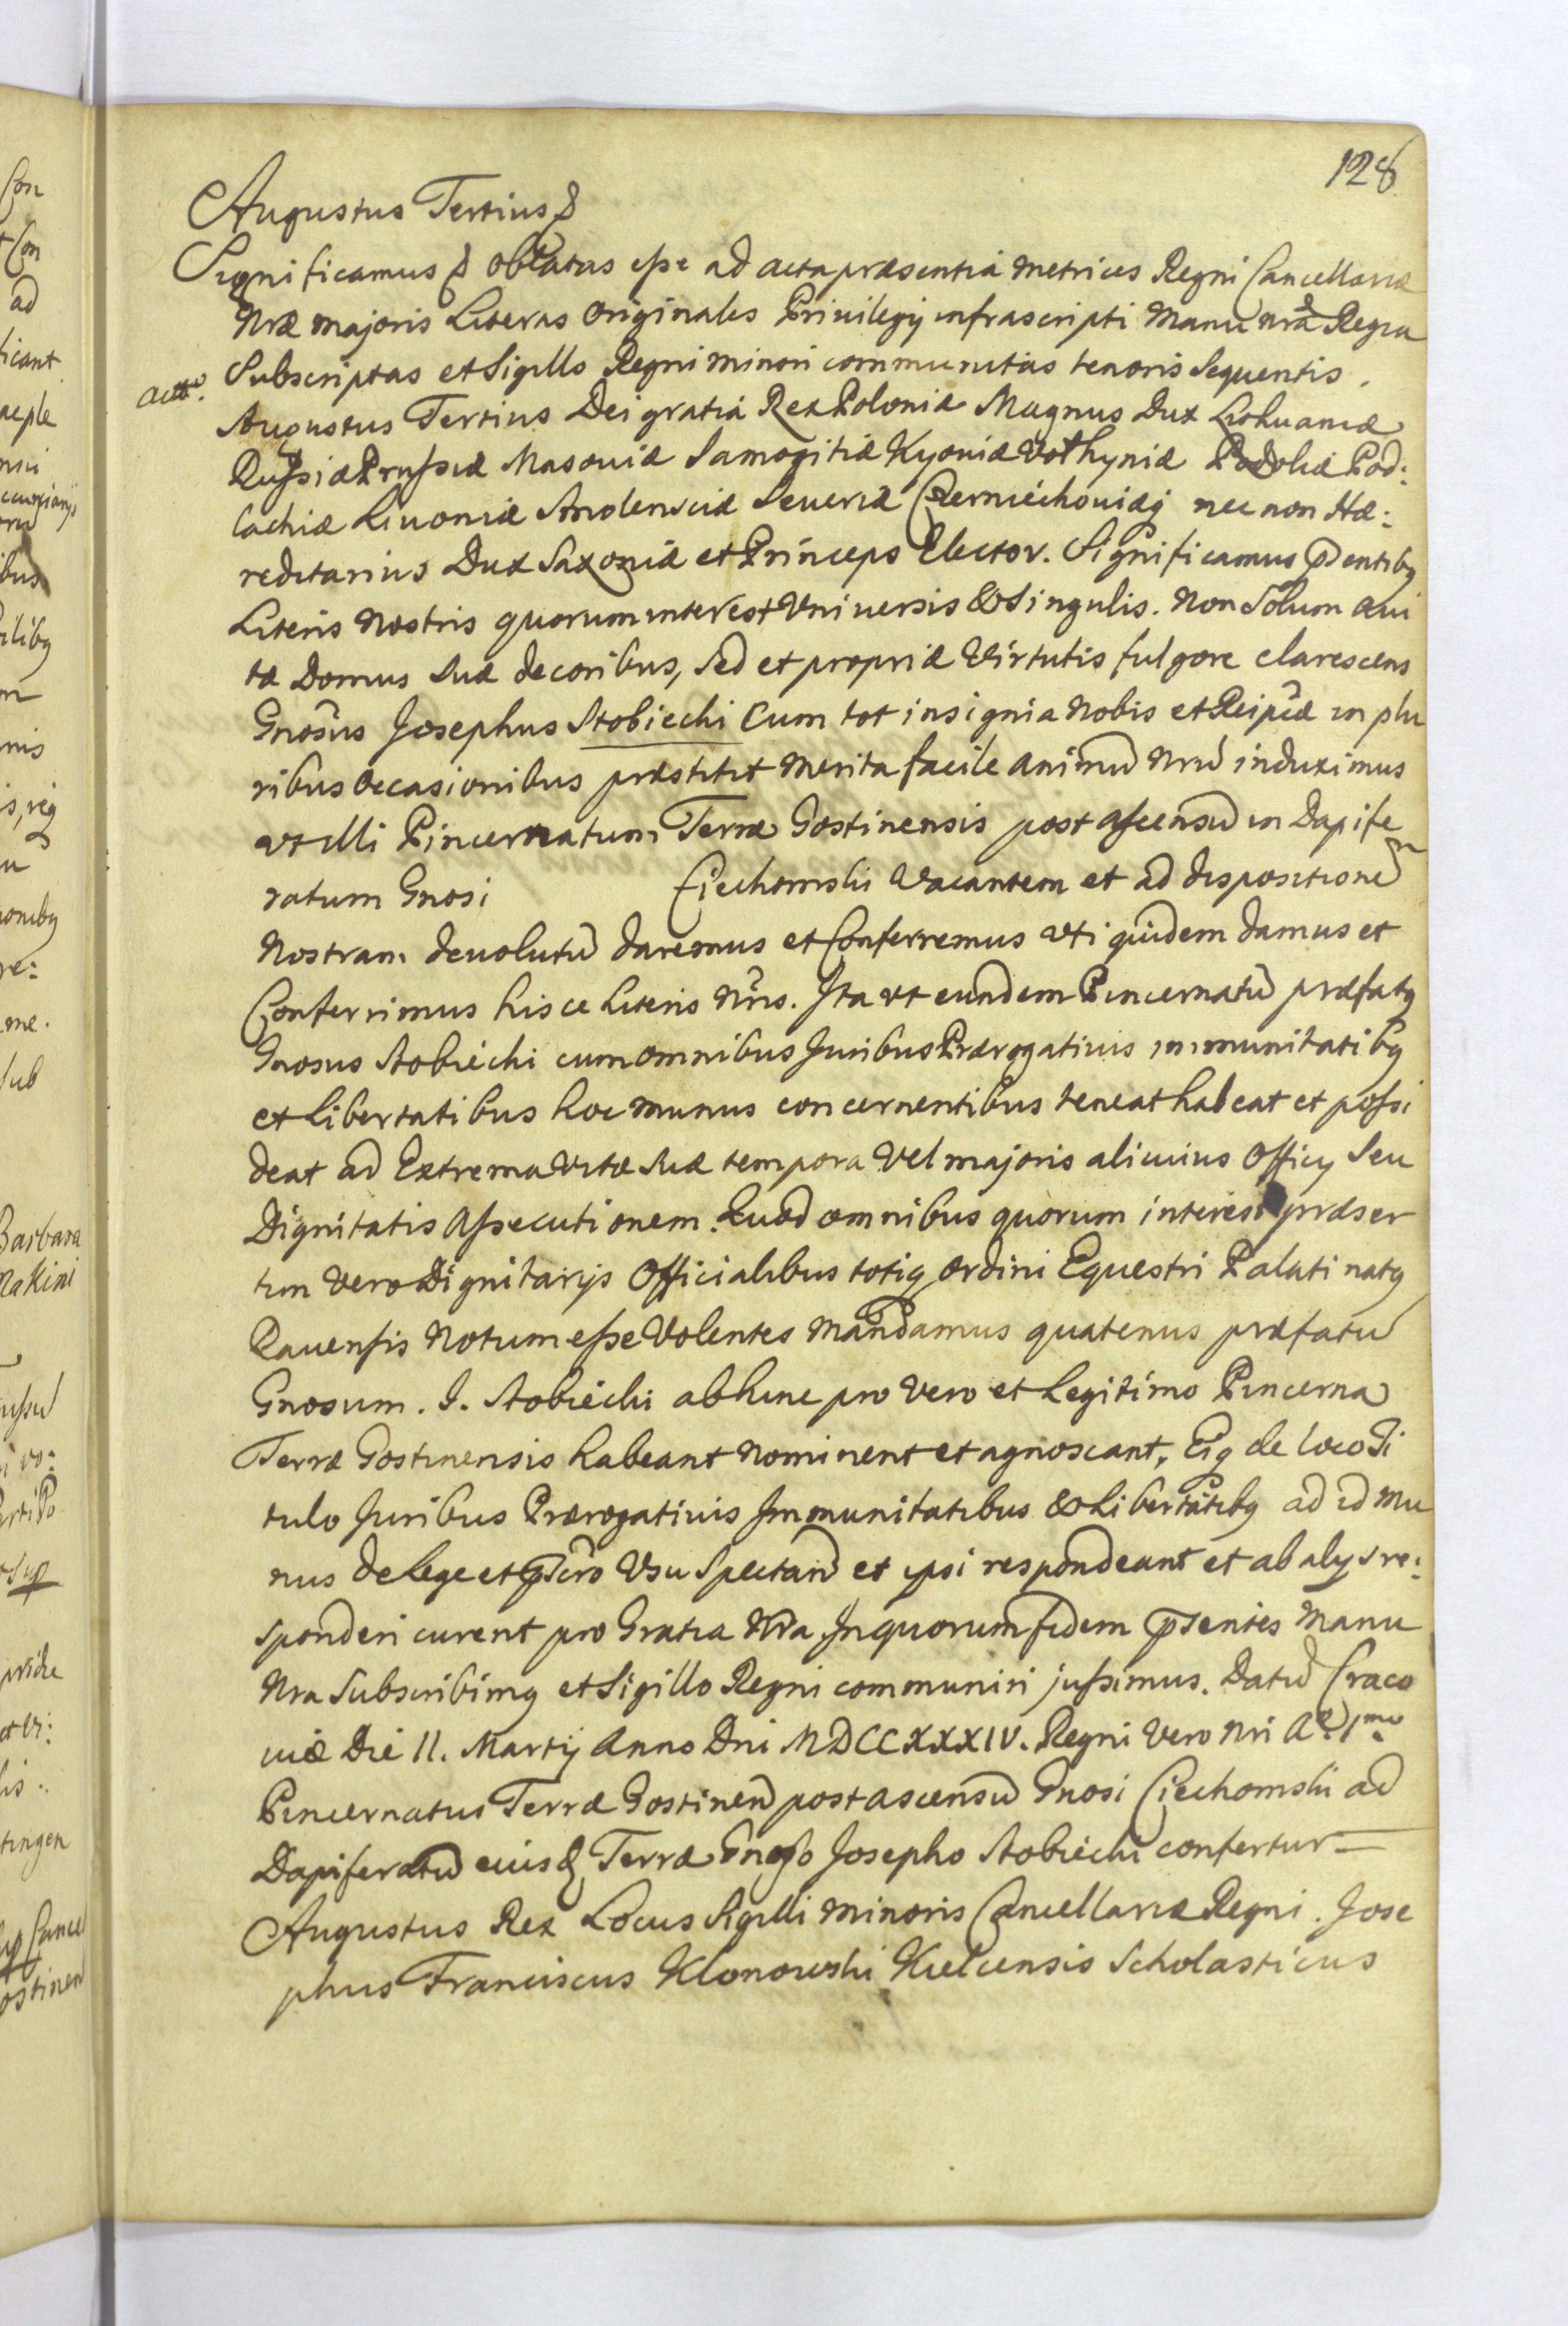 128
Augustus Tertius &
Significamus & oblatas esse ad acta præsentia Metrices Regni Cancellariæ
Nræ majoris Literas Originales Privilegij infrascripti Manu nrâ Regia
Subscriptas et Sigillo Regni minori communitas tenoris Sequentis.
Augustus Tertius Dei gratiâ Rex Poloniæ Magnus Dux Lithuaniæ
Russiæ Prussiæ Masoviæ Samogitiæ Kyoviæ Volhyniæ Podoliæ Pod:
lachiæ Livoniæ Smolensciæ Severiæ Czerniechoviæq nec non Hæ:
reditarius Dux Saxoniæ et Princeps Elector. Significamus psentibq
Literis Nostris quorum interest Universis & Singulis. Non Solum avi
tæ Domus Suæ decoribus, Sed et propriæ Virtutis fulgore clarescens
Gnosus Josephus Stobiecki Cum tot insignia Nobis et Reipcæ in plu
ribus Occasionibus præstitit Merita facile animū Nrū induximus
vt illi Pincernatum Terræ Gostinensis post ascensū in Dapife
ratum Gnosi Ciechomski Vacantem et ad dispositionē
Nostram devolutū daremus et Conferremus vti quidem damus et
Conferrimus hisce Literis Nris. Ita vt eundem Pincernatū præfatq
Gnosus Stobiecki cum omnibus Juribus Prærogativis immunitatibq
et Libertatibus hoc Munus concernentibus teneat habeat et possi
deat ad Extrema Vitæ Suæ tempora Vel majoris alicuius Officij Seu
Dignitatis Assecutionem. Quod omnibus quorum interest præser
tim Vero Dignitarijs Officialibus totiq Ordini Equestri Palatinatq
Ravensis Notum esse Volentes Mandamus quatenus præfatū
Gnosum. J. Stobiecki abhinc pro Vero et Legitimo Pincerna
Terræ Gostinensis habeant Nominent et agnoscant, Eiq de loco Ti
tulo Juribus Prærogativis Immunitatibus & Libertatibq ad id Mu
nus de Lege et Usu Spectañ et ipsi respondeant et ab alijs re:
sponderi curent pro Gratia Nra In quorum fidem psentes Manu
Nra Subscribimq et Sigillo Regni communiri jussimus. Datū Craco
viæ Die 11. Martij Anno Dni MDCCXXXIV. Regni Vero Nri Aº 1mo
Pincernatus Terræ Gostineñ post ascensū Gnosi Ciechomski ad
Dapiferatū eiusd Terræ Gnoso Josepho Stobiecki confertur
Augustus Rex Locus Sigilli Minoris Cancellariæ Regni. Jose
phus Franciscus Klonowski Kielcensis Scholasticus